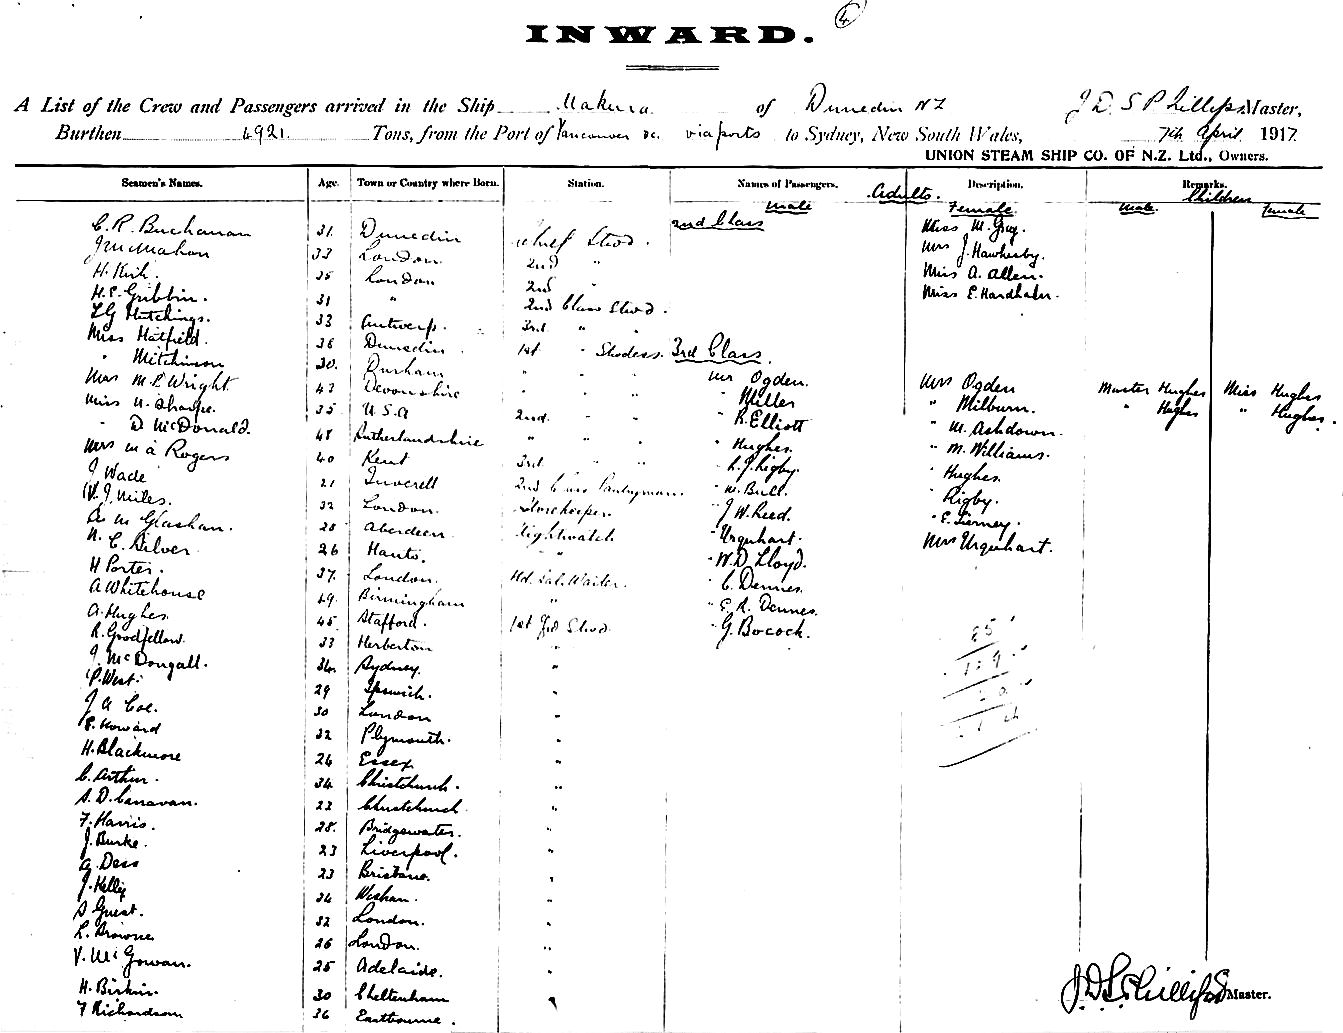 4
INWARD.
A List of the Crew and Passengers arrived in the Ship Makura of Dunedin NZ J D S Phillips Master,
Burthen 4921 Tons, from the Port of Vancouver &c. via ports to Sydney, New South Wales, 7th April 1917
UNION STEAM SHIP CO. OF N.Z. Ltd., Owners.
Seamen's Names. Age. Town or Country where Born. Station. Names of Passengers. Adults. Description. Remarks. Children
Male Female Male. Female
C. R. Buchanan 31. Dunedin Chief Stwd. 2nd Class Miss M. Gray.
J McMahon 33 London 2nd " Mrs J. Hawkesby.
H. Kirk. 35 London 2nd " Miss A. Allen.
H. E. Gribbin. 31 " 2nd Class Stwd. Miss E.
L G Hutchings. 33 Antwerp. 3rd " "
Miss Hatfield. 36 Dunedin. 1st " Stwdess. 3rd Class.
" Mitchinson 30. Durham " " " Mr Ogden. Mrs Ogden Master Hughes Miss Hughes
Mrs M. L. Wright 43 Devonshire " " " " Miller " Milburn. " Hughes " Hughes.
Miss N. Sharpe. 35 U.S.A 2nd. " " " R. Elliott " M. Ashdown.
" D McDonald. 48 Sutherlandshire " " " " Hughes. " M. Williams.
Mrs M A Rogers 40 Kent 3rd " " " L. J. Rigby. " Hughes.
J Wade 21 Inverell 2nd Class Pantryman. " W. Bull. " Rigby.
W. J. Miles. 32 London. Storekeeper. " J W. Reed. " E. Tierney.
A. M Glashan. 28 Aberdeen Nightwatch " Urquhart. Mrs Urquhart.
N. C. Silver. 26 Hants. " " W. D. Lloyd.
H Porter. 37. London. Hd. Sal. Waiter. " C. Dennes.
A Whitehouse 49. Birmingham " " E. R. Dennes.
A. Hughes. 45 Stafford. 1st Gd Stwd. " G. Bocock.
R. Goodfellow. 33 Herberton "
J. McDougall. 34. Sydney. "
P. West. 29 Ipswich. "
J A Coe. 30 London "
E. Howard 32 Plymouth. "
H. Blackmore 26 Essex "
C. Arthur. 34 Christchurch. "
S. D. Canavan. 22 Christchurch "
F. Harris. 28. Bridgewater. "
J. Burke. 23 Liverpool. "
A. Dess 23 Brisbane. "
J. Kelly 34 "
S Guest. 32 London. "
L. Browne 26 London. "
V. McGowan. 25 Adelaide. "
H. Birkin. 30 Cheltenham "
F Richardson 36 Eastbourne.
J. D. S. Phillips Master.